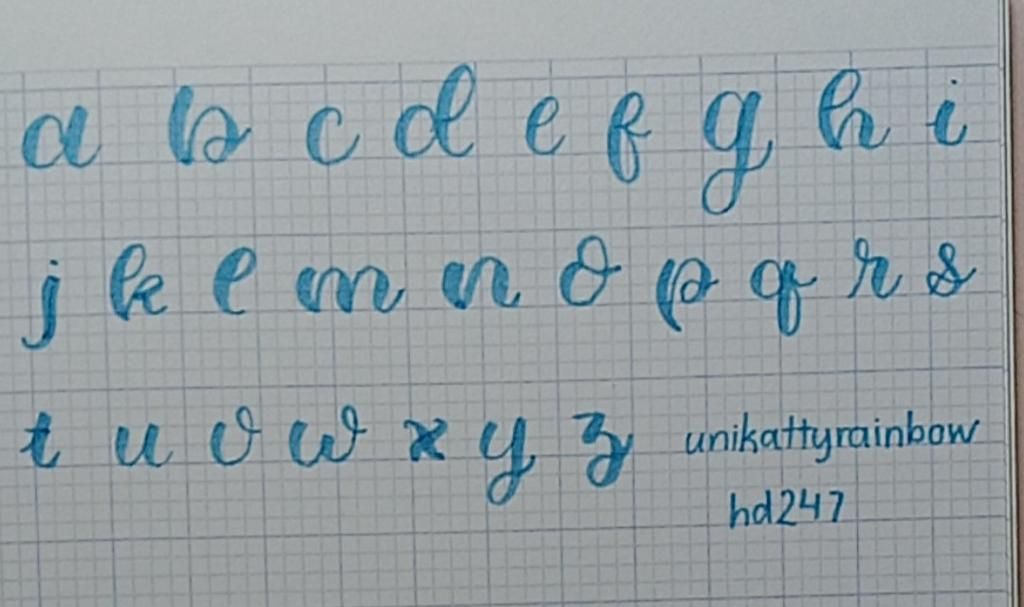 a b c d e f g h i
j k l m n o p q r s
t u v w x y z unikattyrainbow
hd247